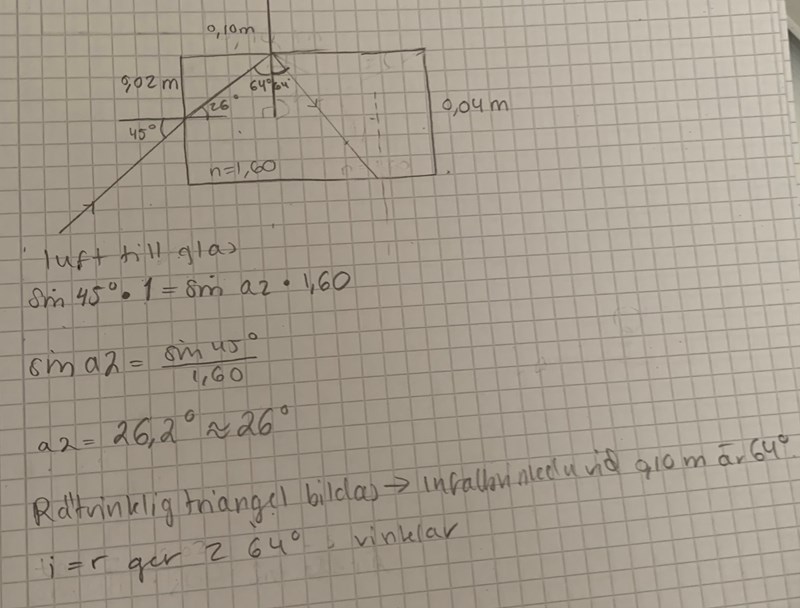 0,10m
0,02m
64° 64°
26°
0,04m
45°
n=1,60
luft till glas
sin 45° • 1 = sin a2 • 1,60
sin a2 = sin 45° / 1,60
a2 = 26,2° ≈ 26°
Rätvinklig triangel bildas → infallsvinkeln vid 0,10 m är 64°.
i = r ger 2 64° vinklar